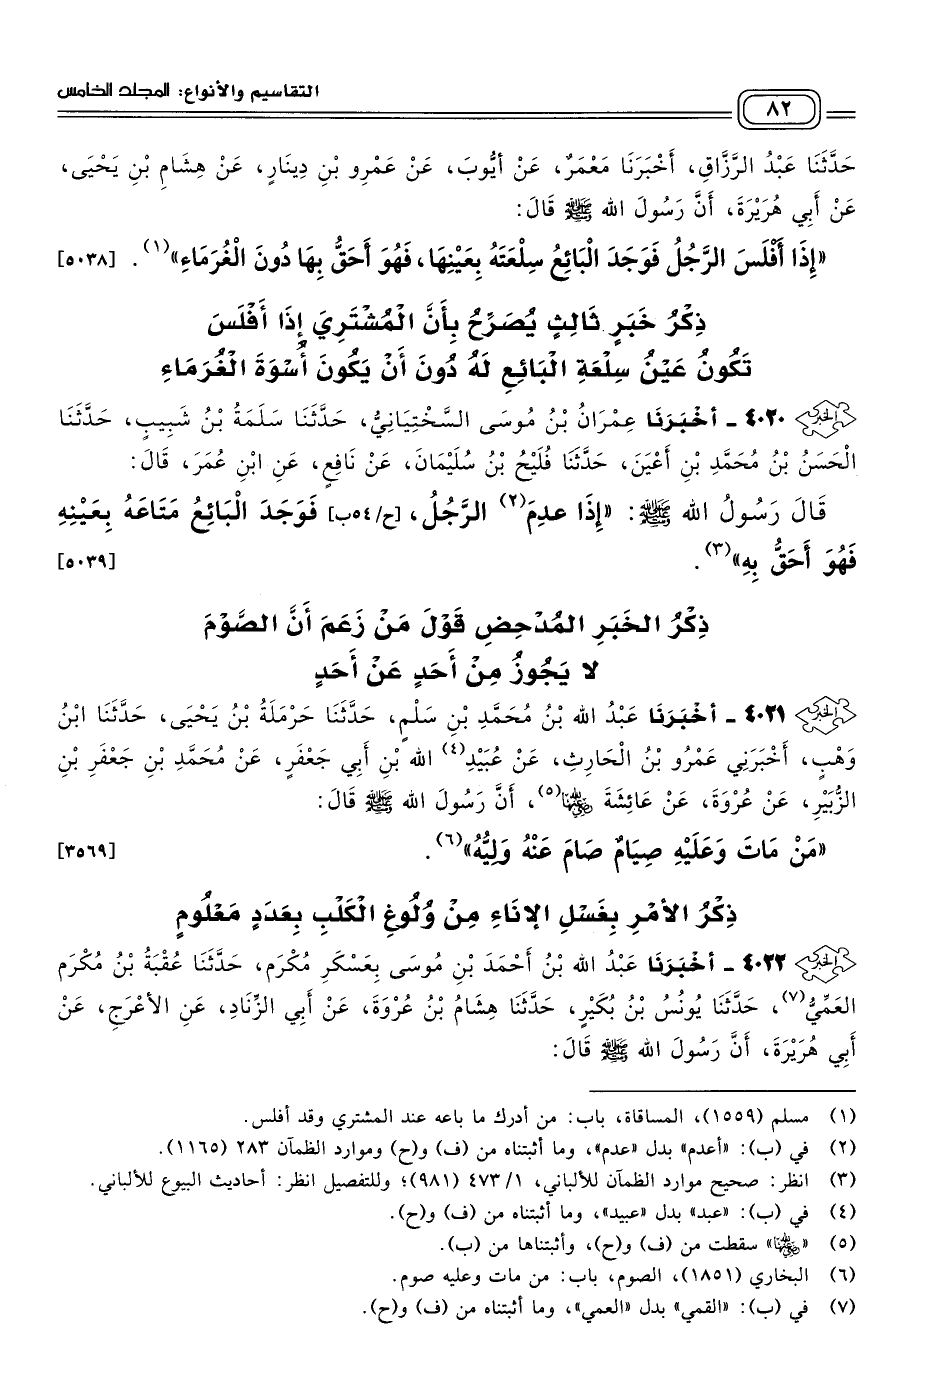 التقاسيم والأنواع: المجلد الخامس
٨٢
حَدَّثَنَا عَبْدُ الرَّزَّاقِ، أَخْبَرَنَا مَعْمَرٌ، عَنْ أَيُّوبَ، عَنْ عَمْرِو بْنِ دِينَارٍ، عَنْ هِشَامِ بْنِ يَحْيَى،
عَنْ أَبِي هُرَيْرَةَ، أَنَّ رَسُولَ الله ﷺ قَالَ:
«إِذَا أَفْلَسَ الرَّجُلُ فَوَجَدَ الْبَائِعُ سِلْعَتَهُ بِعَيْنِهَا، فَهُوَ أَحَقُّ بِهَا دُونَ الْغُرَمَاءِ»(١). [٥٠٣٨]
ذِكْرُ خَبَرٍ ثَالِثٍ يُصَرِّحُ بِأَنَّ الْمُشْتَرِيَ إِذَا أَفْلَسَ
تَكُونُ عَيْنُ سِلْعَةِ الْبَائِعِ لَهُ دُونَ أَنْ يَكُونَ أُسْوَةَ الْغُرَمَاءِ
٤٠٢٠ - أَخْبَرَنَا عِمْرَانُ بْنُ مُوسَى السَّخْتِيَانِيُّ، حَدَّثَنَا سَلَمَةُ بْنُ شَبِيبٍ، حَدَّثَنَا
الْحَسَنُ بْنُ مُحَمَّدِ بْنِ أَعْيَنَ، حَدَّثَنَا فُلَيْحُ بْنُ سُلَيْمَانَ، عَنْ نَافِعٍ، عَنِ ابْنِ عُمَرَ، قَالَ:
قَالَ رَسُولُ الله ﷺ: «إِذَا عدِمَ(٢) الرَّجُلُ، [ح/٥٤ب] فَوَجَدَ الْبَائِعُ مَتَاعَهُ بِعَيْنِهِ
فَهُوَ أَحَقُّ بِهِ»(٣). [٥٠٣٩]
ذِكْرُ الخَبَرِ المُدْحِضِ قَوْلَ مَنْ زَعَمَ أَنَّ الصَّوْمَ
لا يَجُوزُ مِنْ أَحَدٍ عَنْ أَحَدٍ
٤٠٢١ - أَخْبَرَنَا عَبْدُ الله بْنُ مُحَمَّدِ بْنِ سَلْمٍ، حَدَّثَنَا حَرْمَلَةُ بْنُ يَحْيَى، حَدَّثَنَا ابْنُ
وَهْبٍ، أَخْبَرَنِي عَمْرُو بْنُ الْحَارِثِ، عَنْ عُبَيْدِ(٤) الله بْنِ أَبِي جَعْفَرٍ، عَنْ مُحَمَّدِ بْنِ جَعْفَرِ بْنِ
الزُّبَيْرِ، عَنْ عُرْوَةَ، عَنْ عَائِشَةَ رضي الله عنها(٥)، أَنَّ رَسُولَ الله ﷺ قَالَ:
«مَنْ مَاتَ وَعَلَيْهِ صِيَامٌ صَامَ عَنْهُ وَلِيُّهُ»(٦). [٣٥٦٩]
ذِكْرُ الأَمْرِ بِغَسْلِ الإِنَاءِ مِنْ وُلُوغِ الْكَلْبِ بِعَدَدٍ مَعْلُومٍ
٤٠٢٢ - أَخْبَرَنَا عَبْدُ الله بْنُ أَحْمَدَ بْنِ مُوسَى بِعَسْكَرِ مُكْرَمٍ، حَدَّثَنَا عُقْبَةُ بْنُ مُكْرَمٍ
العَمِّيُّ(٧)، حَدَّثَنَا يُونُسُ بْنُ بُكَيْرٍ، حَدَّثَنَا هِشَامُ بْنُ عُرْوَةَ، عَنْ أَبِي الزِّنَادِ، عَنِ الأَعْرَجِ، عَنْ
أَبِي هُرَيْرَةَ، أَنَّ رَسُولَ الله ﷺ قَالَ:
(١) مسلم (١٥٥٩)، المساقاة، باب: من أدرك ما باعه عند المشتري وقد أفلس.
(٢) في (ب): «أعدم» بدل «عدم»، وما أثبتناه من (ف) و(ح) وموارد الظمآن ٢٨٣ (١١٦٥).
(٣) انظر: صحيح موارد الظمآن للألباني، ١/ ٤٧٣ (٩٨١)؛ وللتفصيل انظر: أحاديث البيوع للألباني.
(٤) في (ب): «عبد» بدل «عبيد»، وما أثبتناه من (ف) و(ح).
(٥) «رضي الله عنها» سقطت من (ف) و(ح)، وأثبتناها من (ب).
(٦) البخاري (١٨٥١)، الصوم، باب: من مات وعليه صوم.
(٧) في (ب): «القمي» بدل «العمي»، وما أثبتناه من (ف) و(ح).